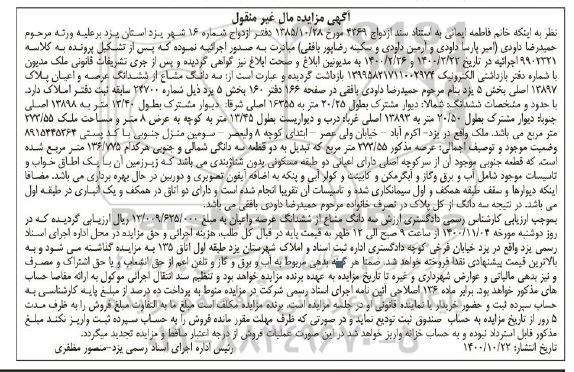 آگهی مزایده مال غیر منقول
نظر به اینکه خانم فاطمه ایمانی به استناد سند ازدواج ۴۳۶۹ مورخ ۱۳۸۵/۱۰/۲۸ دفتر ازدواج شماره ۱۶ شهر یزد استان یزد برعلیه ورثه مرحوم
حمیدرضا داودی (امیر پارسا داودی و آرمین داودی و سکینه رضاپور بافقی) مبادرت به صدور اجرائیه نموده که پس از تشکیل پرونده به کلاسه
۹۹۰۲۳۲۱ اجرائیه در تاریخ ۱۴۰۰/۲/۲۲ و ۱۴۰۰/۲/۲۶ به مدیونین ابلاغ و صحت ابلاغ نیز گواهی گردیده و پس از جری تشریفات قانونی ملک مدیون
با شماره دفتر بازداشتی الکترونیک ۱۳۹۹۵۸۲۱۷۱۱۰۰۲۹۷۴ بازداشت گردیده و عبارت است از: سه دانگ مشاع از ششدانگ عرصه و اعیان پلاک
۱۳۸۹۷ اصلی بخش ۵ یزد بنام مرحوم حمیدرضا داودی بافقی در صفحه ۱۶۶ دفتر ۱۶۰ بخش ۵ یزد ذیل شماره ۲۴۷۰۰ سابقه ثبت دفتر املاک دارد.
با حدود و مشخصات ششدانگ: شمالا: دیوار مشترک بطول ۲۰/۲۵ متر به ۱۶۳۵۵ اصلی شرقا: دیوار مشترک بطول ۱۳/۴۰ متر به ۱۳۸۹۸ اصلی
جنوبا: دیوار مشترک بطول ۲۰/۵۰ متر به ۱۳۸۹۳ اصلی غربا: درب و دیواریست بطول ۱۳/۴۵ متر به کوچه به عرض ۸ متر و مساحت ملک ۲۷۳/۵۵
متر مربع می باشد. ملک واقع در یزد- اکرم آباد – خیابان ولی عصر – ابتدای کوچه ۸ ولیعصر – سومین منزل جنوبی با کد پستی ۸۹۱۵۴۴۵۳۶۴
وضعیت موجود و توصیف اجمالی: عرصه مذکور ۲۷۳/۵۵ متر مربع که تبدیل به دو قطعه سه دانگی شمالی و جنوبی هرکدام ۱۳۶/۷۷۵ متر مربع شده
است. که قطعه جنوبی موجود آن از سرکوچه اصلی دارای اعیانی دو طبقه مسکونی بدون شناژبندی می باشد که زیرزمین آن با یک اطاق خواب و
تاسیسات موجود شامل آب و برق وگاز و آبگرمکن و کابینت و کولر آبی و پنکه به اضافه آیفون تصویری و دوربین در حال بهره برداری می باشد. مضافا
اینکه دیوارها و سقف طبقه همکف و اول سیمانکاری شده و تاسیسات آن تقریبا انجام شده است و دارای دو اتاق در همکف و یک انباری در طبقه اول
می باشد. در نتیجه سه دانگ از کل پلاک در تصرف خانواده مرحوم حمیدرضا داودی بافقی می باشد.
بموجب ارزیابی کارشناس رسمی دادگستری ارزش سه دانگ مشاع از ششدانگ عرصه واعیان به مبلغ ۱۳/۰۰۹/۶۲۵/۰۰۰ ریال ارزیابی گردیده که در
روز دوشنبه مورخه ۱۴۰۰/۱۱/۰۴ از ساعت ۹ صبح الی ۱۲ ظهر به قیمت پایه در قبال کل طلب، هزینه اجرائی و حق مزایده در محل اداره اجرای اسناد
رسمی یزد واقع در یزد خیابان فرخی کوچه دادگستری اداره ثبت اسناد و املاک شهرستان یزد طبقه اول اتاق ۱۳۵ به مزایده گذاشته می شود و به
بالاترین قیمت پیشنهادی نقدا فروخته خواهد شد. ضمنا هر گونه بدهی مربوط به آب و برق و گاز و تلفن اعم از حق انشعاب و یا حق اشتراک و مصرف
و نیز بدهی مالیاتی و عوارض شهرداری و غیره تا تاریخ مزایده به عهده برنده مزایده خواهد بود و تنظیم سند انتقال اجرائی موکول به ارائه مفاصا حساب
های مذکور خواهد بود. برابر ماده ۱۳۶ اصلاحی آئین نامه اجرای اسناد رسمی شرکت در مزایده منوط به پرداخت ده درصد از مبلغ پایه کارشناسی به
حساب سپرده ثبت و حضور خریدار یا نماینده قانونی او در جلسه مزایده است. برنده مزایده مکلف است مابه التفاوت مبلغ فروش را به ظرف مدت
۵ روز از تاریخ مزایده به حساب صندوق ثبت تودیع نماید و در صورتی که ظرف مهلت مقرر مانده فروش را به حساب سپرده ثبت واریز نکند مبلغ
مذکور قابل استرداد نبوده و به حساب خزانه واریز خواهد شد. در این صورت عملیات فروش از درجه اعتبار ساقط و مزایده تجدید میگردد.
تاریخ انتشار: ۱۴۰۰/۱۰/۲۲ رئیس اداره اجرای اسناد رسمی یزد-منصور مظفری